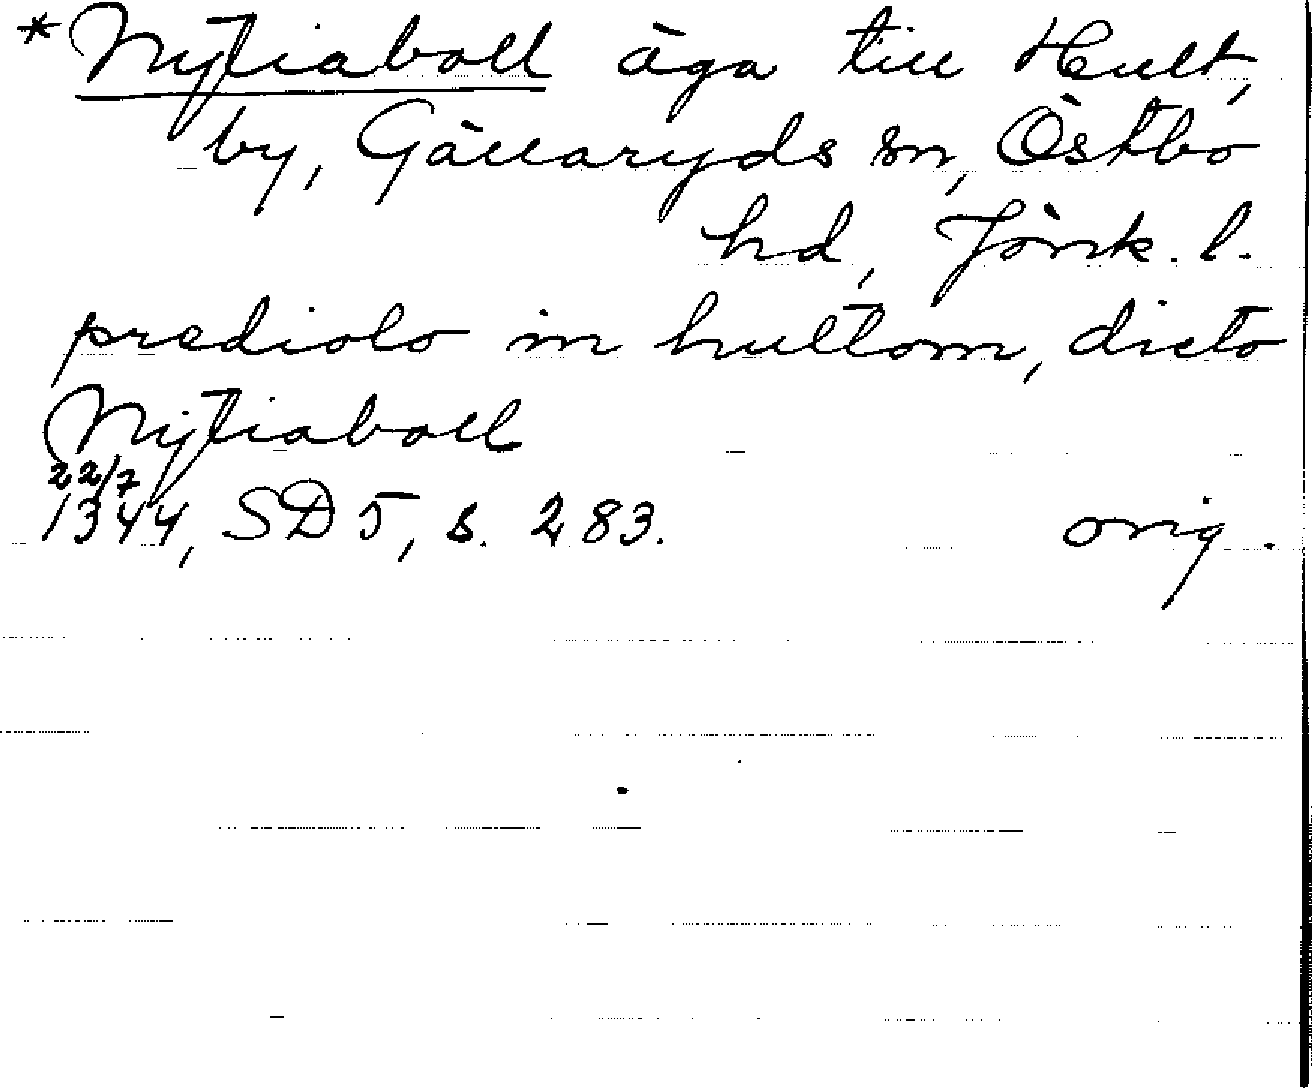 *Nytiaboll äga till Hult,
by, Gällaryds sn, Östbo
hd, Jönk. l.
prediolo in hultom, dicto
Nijtiaboll
22/7
1344, SD 5, s. 283. orig.